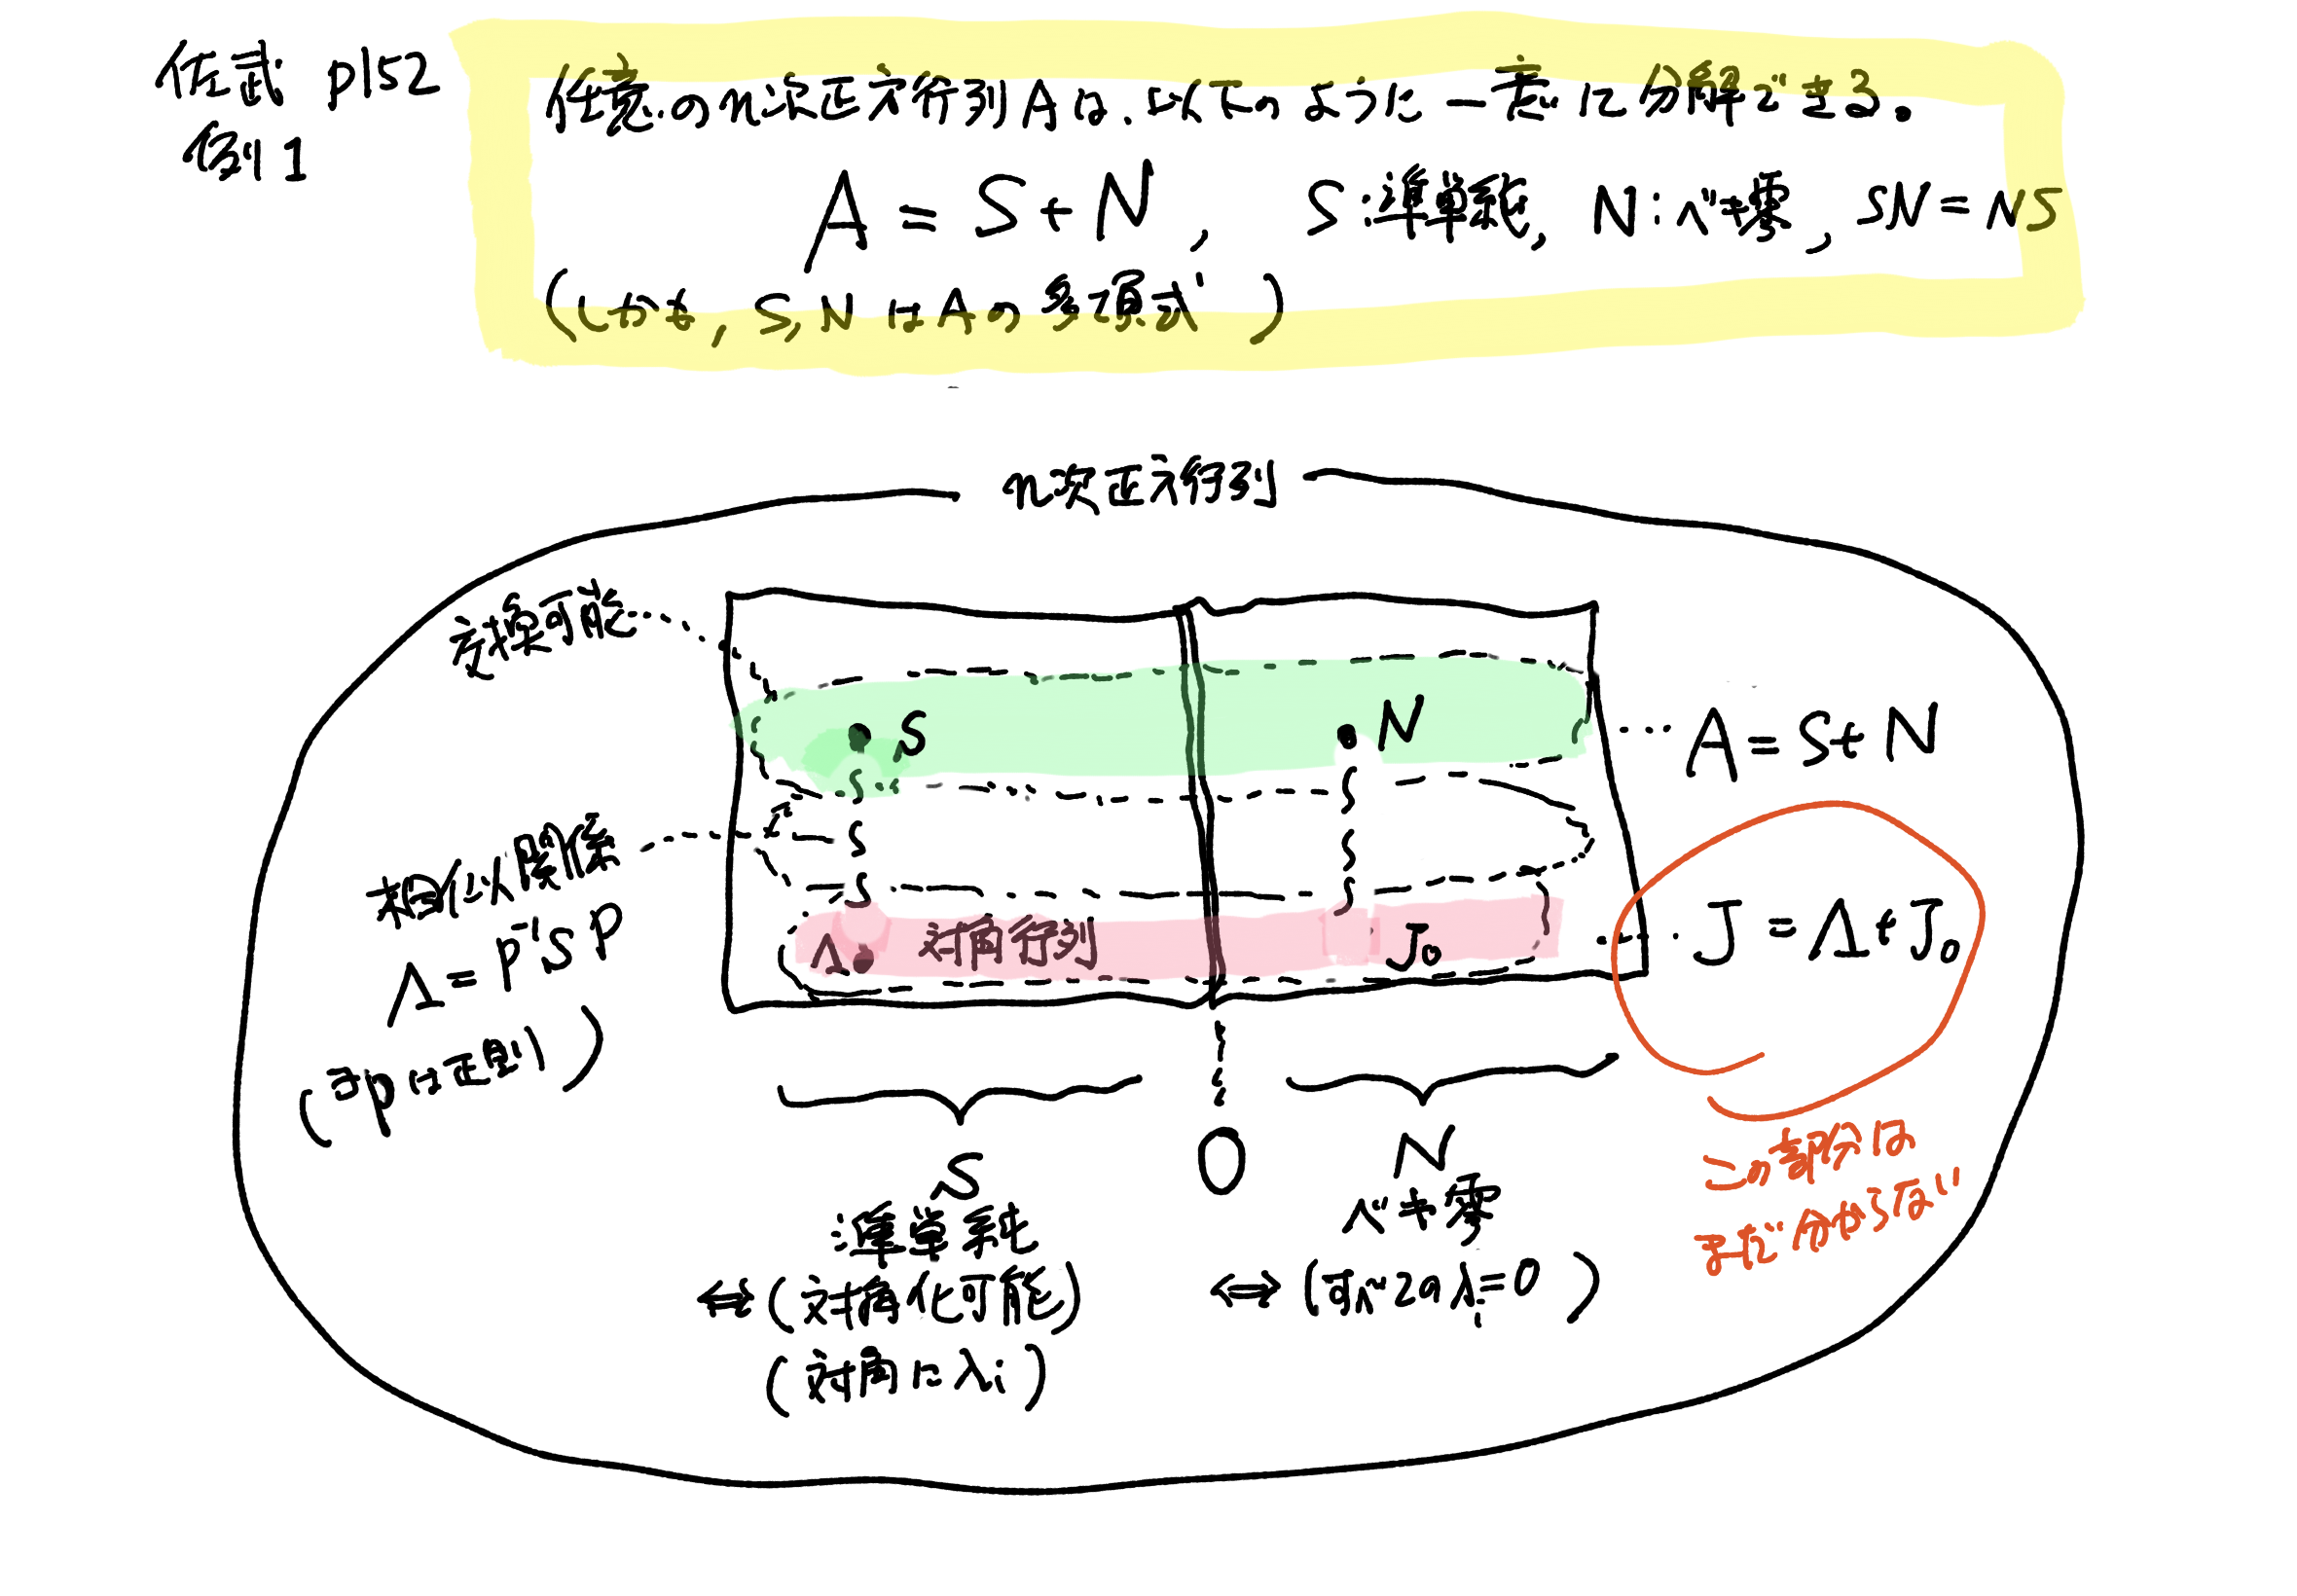 佐武 p152
例1
任意のn次正方行列Aは、以下のように一意に分解できる。
A = S + N , S:準単純, N:ベキ零, SN = NS
(しかも, S, N は A の 多項式 )
n次正方行列
交換可能
S
N
A = S + N
相似関係
Λ = P⁻¹SP
(ヨPは正則)
Λ 対角行列
J₀
J = Λ + J₀
この部分は
まだ分からない
S
準単純
⇔ (対角化可能)
(対角にλi)
O
N
ベキ零
⇔ (すべてのλi=0 )